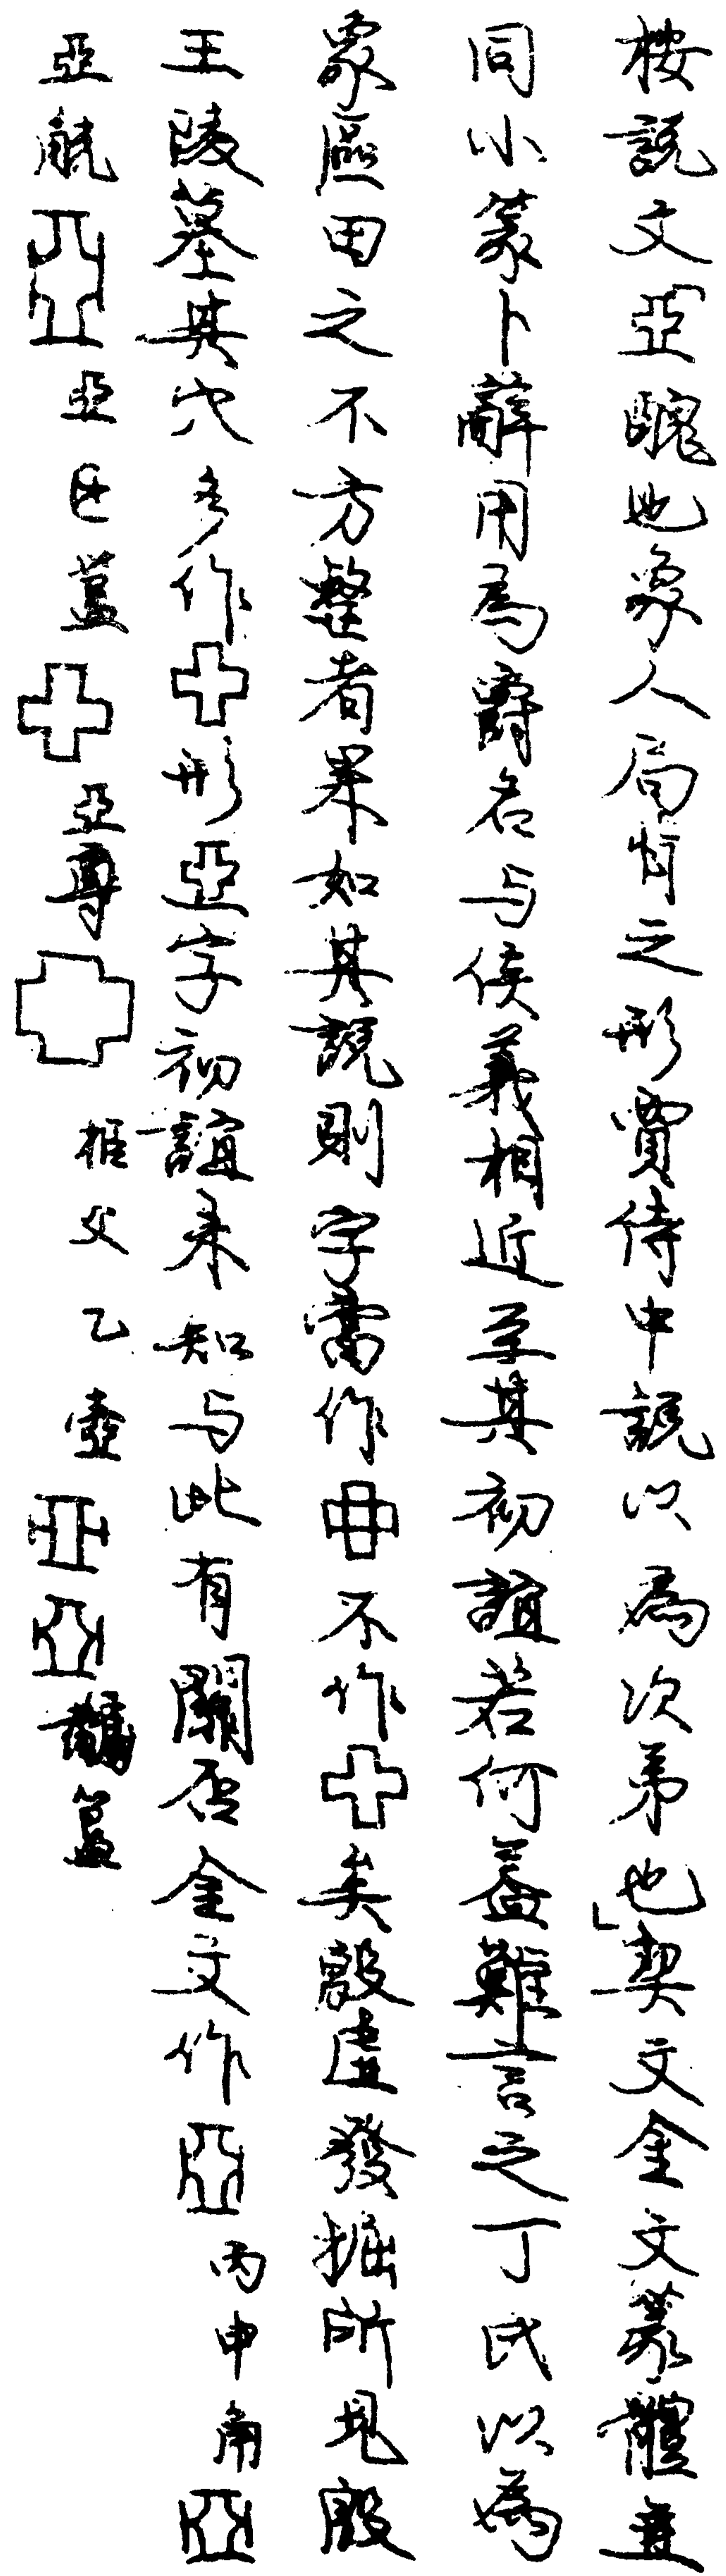 桉說文「亞醜也象人局背之形賈侍中說以為次弟也」契文金文篆體並
同小篆卜辭用為爵名与侯義相近至其初誼若何蓋難言之丁氏以為
象區田之不方整者果如其說則字當作不作矣殷虛發掘所見殷
王陵墓其穴多作形亞字初誼未知与此有關否金文作亞丙申角亞
亞觥亞亞簋亞尊父乙壺簋